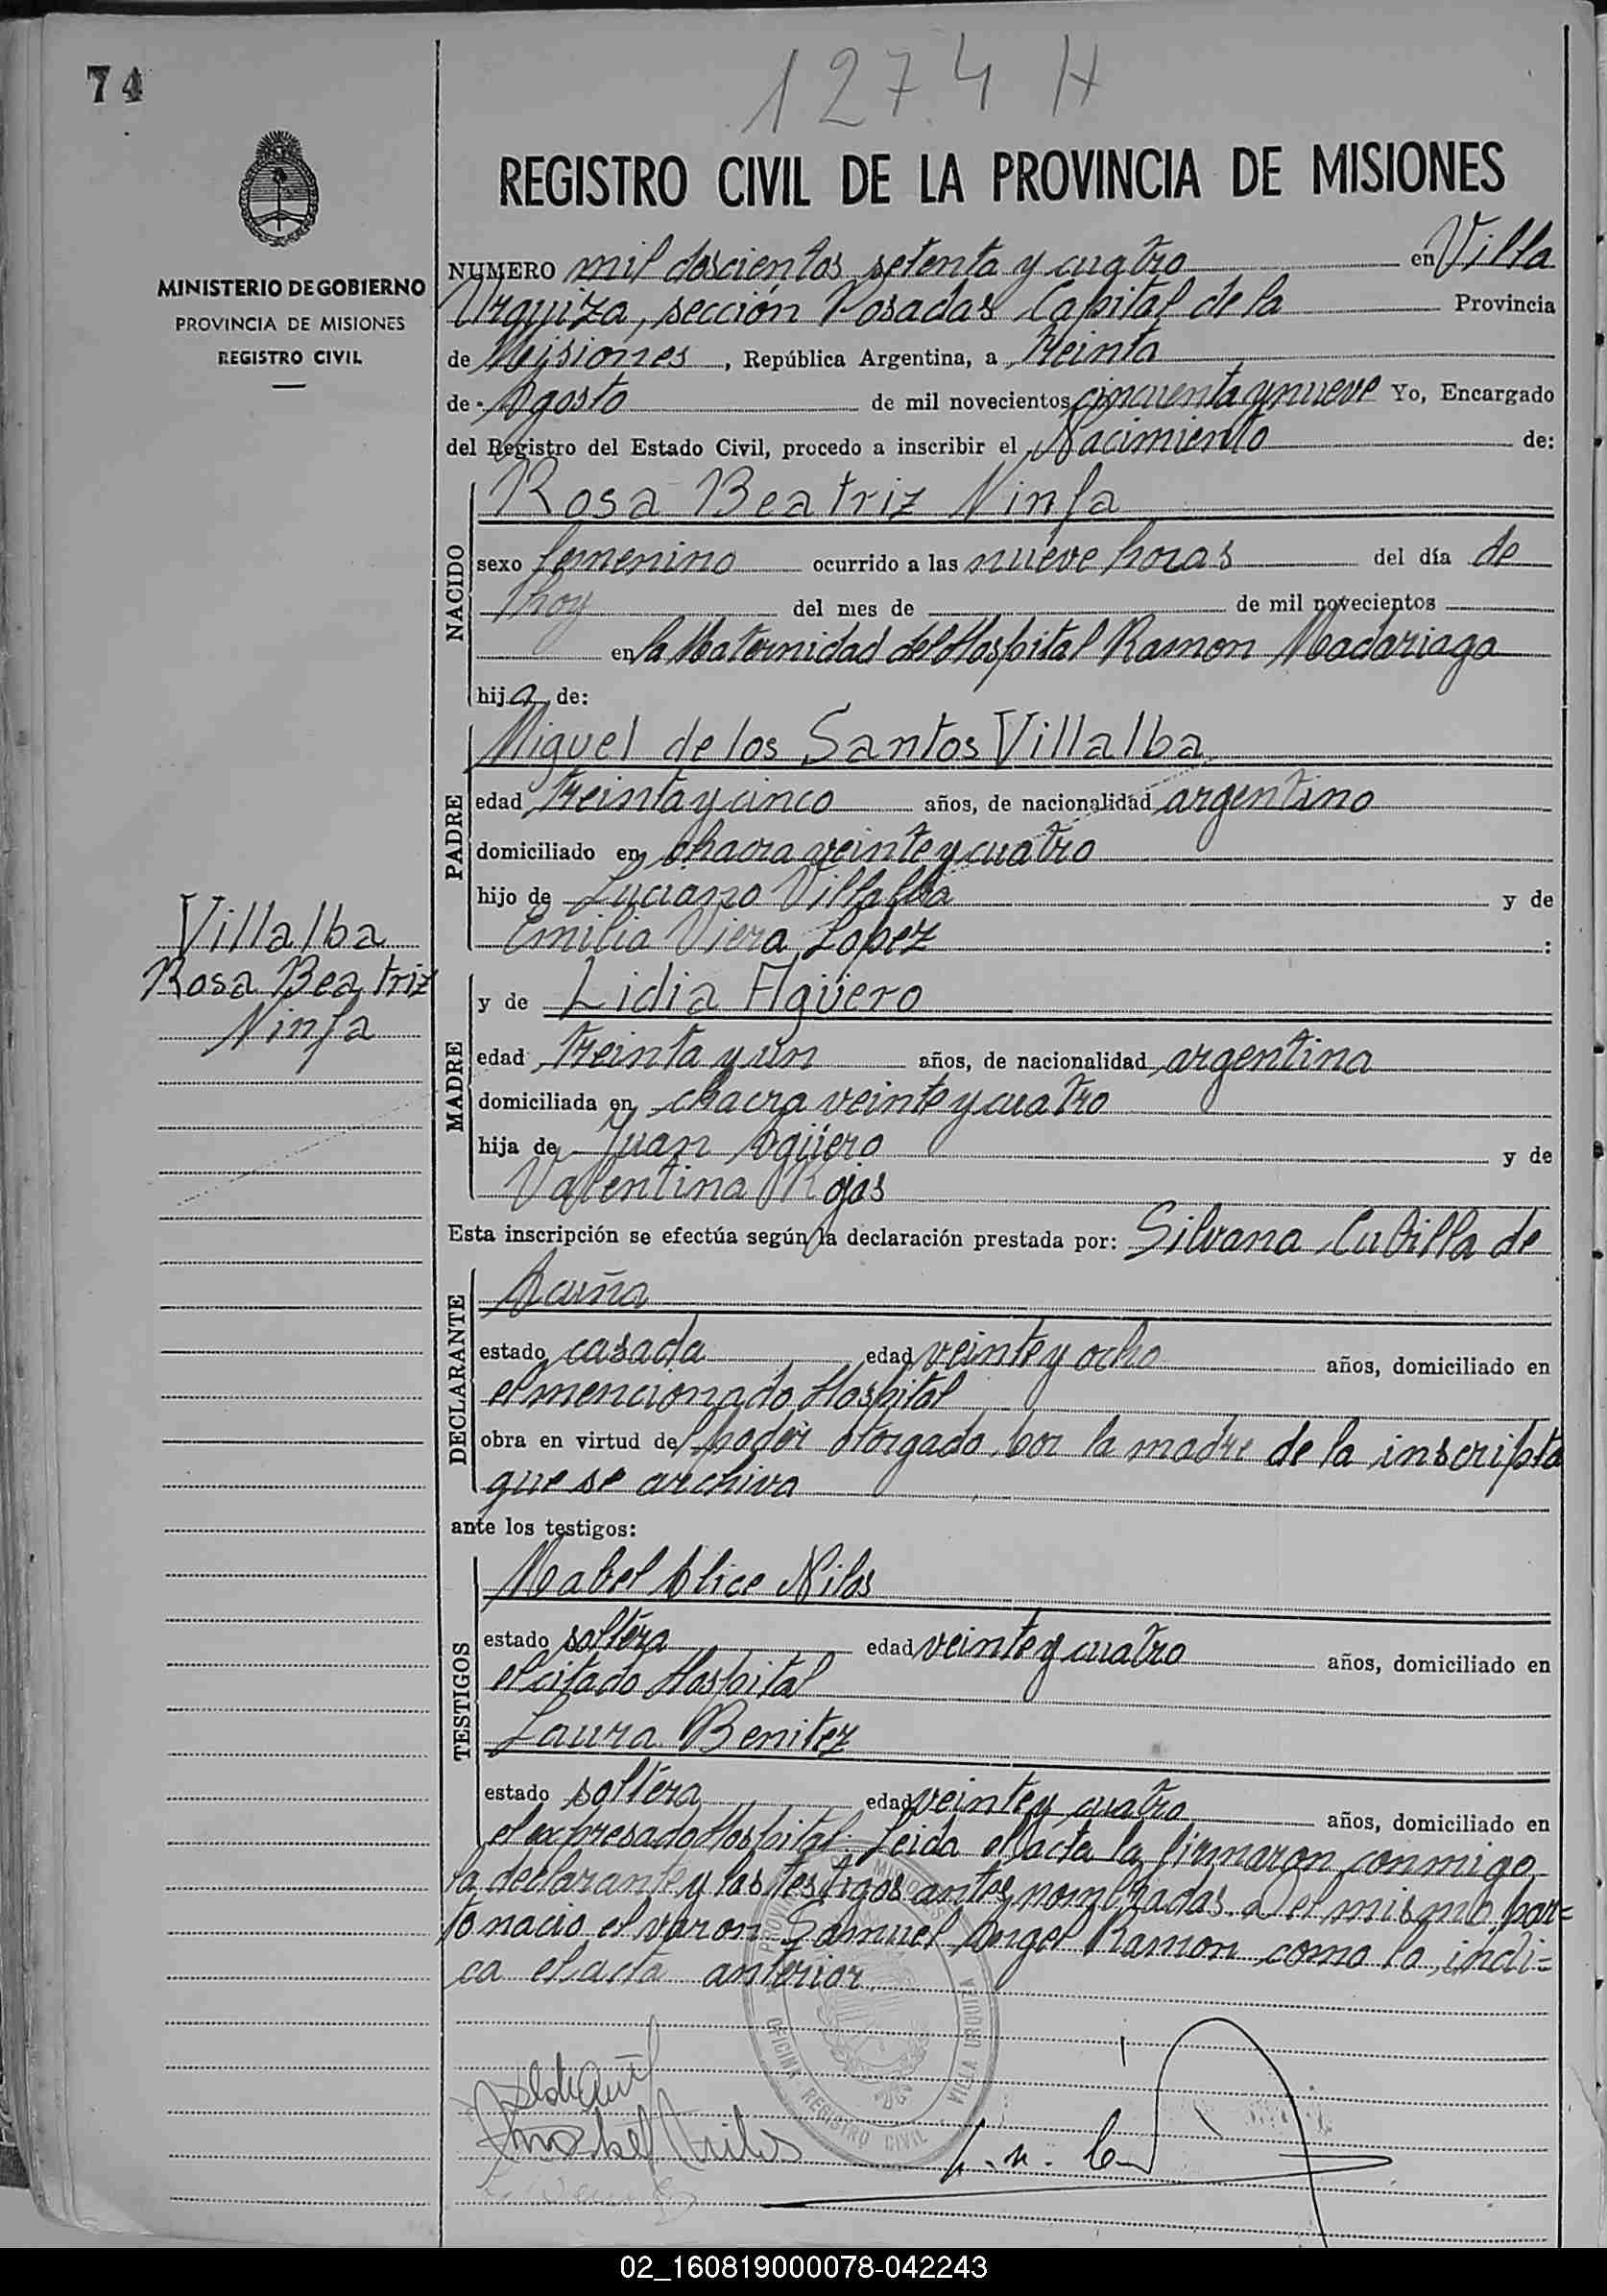 74
1274 H
REGISTRO CIVIL DE LA PROVINCIA DE MISIONES
MINISTERIO DE GOBIERNO
PROVINCIA DE MISIONES
REGISTRO CIVIL
NUMERO mil doscientos setenta y cuatro en Villa
Urquiza, sección Posadas Capital de la Provincia
de Misiones, República Argentina, a treinta
de Agosto de mil novecientos cincuenta y nueve Yo, Encargado
del Registro del Estado Civil, procedo a inscribir el Nacimiento de:
NACIDO
Rosa Beatriz Ninfa
sexo femenino ocurrido a las nueve horas del día de
hoy del mes de de mil novecientos
en la Maternidad del Hospital Ramon Madariaga
hija de:
PADRE
Miguel de los Santos Villalba
edad treinta y cinco años, de nacionalidad argentino
domiciliado en chacra veinte y cuatro
hijo de Luciano Villalba y de
Emilia Viera Lopez :
Villalba
Rosa Beatriz
Ninfa
MADRE
y de Lidia Agüero
edad treinta y un años, de nacionalidad argentina
domiciliada en chacra veinte y cuatro
hija de Juan Agüero y de
Valentina Rojas
Esta inscripción se efectúa según la declaración prestada por: Silvana Cubilla de
DECLARANTE
Acuña
estado casada edad veinte y ocho años, domiciliado en
el mencionado Hospital
obra en virtud del poder otorgado por la madre de la inscripta
que se archiva
ante los testigos:
TESTIGOS
Mabel Alice Nilos
estado soltera edad veinte y cuatro años, domiciliado en
el citado Hospital
Laura Benitez
estado soltera edad veinte y cuatro años, domiciliado en
el expresado Hospital. Leida el acta la firmaron conmigo
la declarante y las testigos antes nombradas. Del mismo par=
to nacio el varon Samuel Angel Ramon como lo indi=
ca el acta anterior
OFICINA REGISTRO CIVIL VILLA URQUIZA
02_160819000078-042243